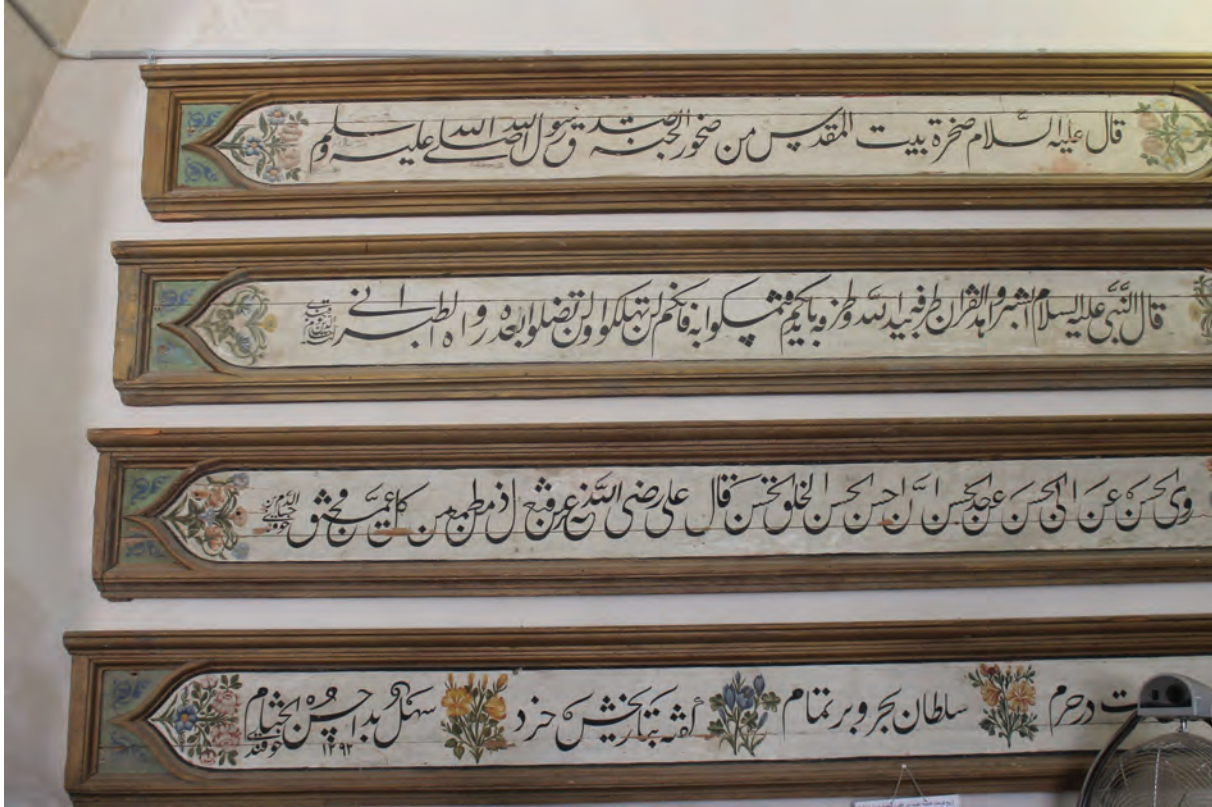 قال عليه السلام صخرة بيت المقدس من صخور الجنة صدق رسول الله صلى الله عليه وسلم
قال النبي عليه السلام ابشروا هذا القران طرفه بيد الله وطرفه بايديكم فتمسكوا به فانكم لن تهلكوا ولن تضلوا بعده رواه الطبراني
روى الحسن عن ابى الحسن عن جد الحسن ان احسن الحسن الخلق الحسن قال على رضى الله عنه عز من قنع ذل من طمع
در حرم سلطان بحر و بر تمام گفته بتاریخش خرد سهل بدا حسن الختام ۱۲۹۲